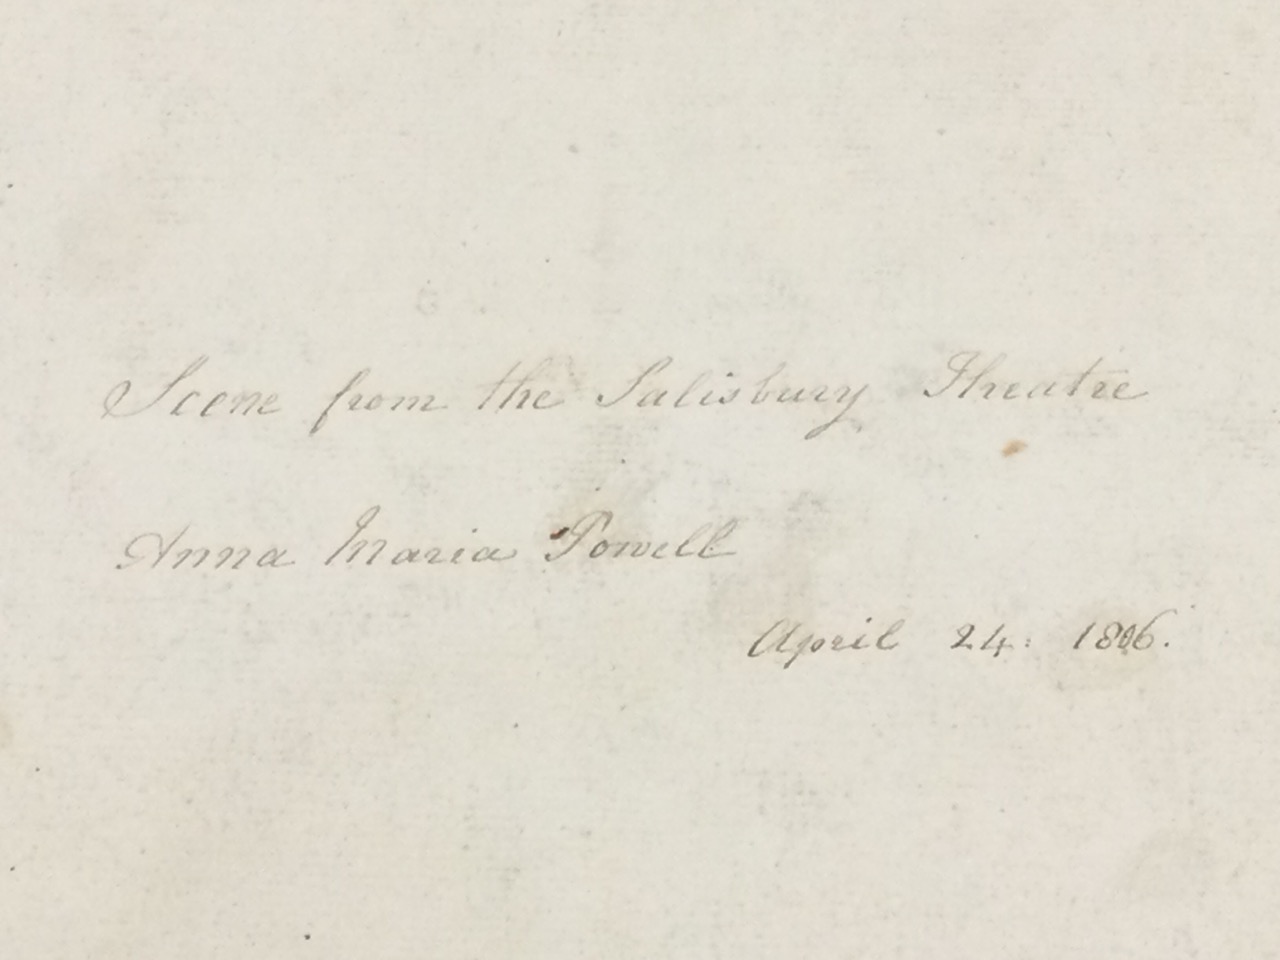 Scene from the Salisbury Theatre
Anna Maria Powell
April 24: 1806.